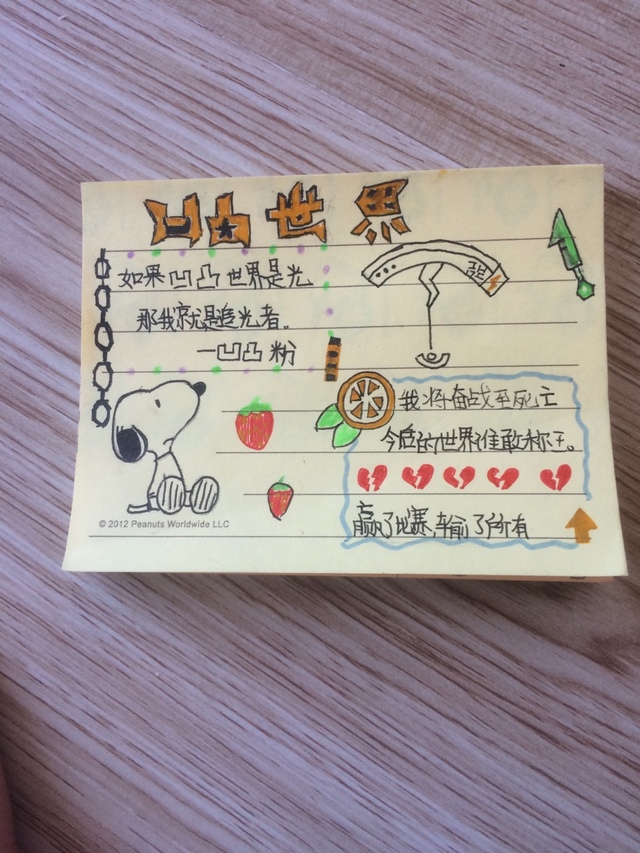 凹凸世界
如果凹凸世界是光
那我就是追光者。
一凹凸粉
我将奋战至死亡
今后的世界谁敢称王。
赢了比赛,输了所有
© 2012 Peanuts Worldwide LLC